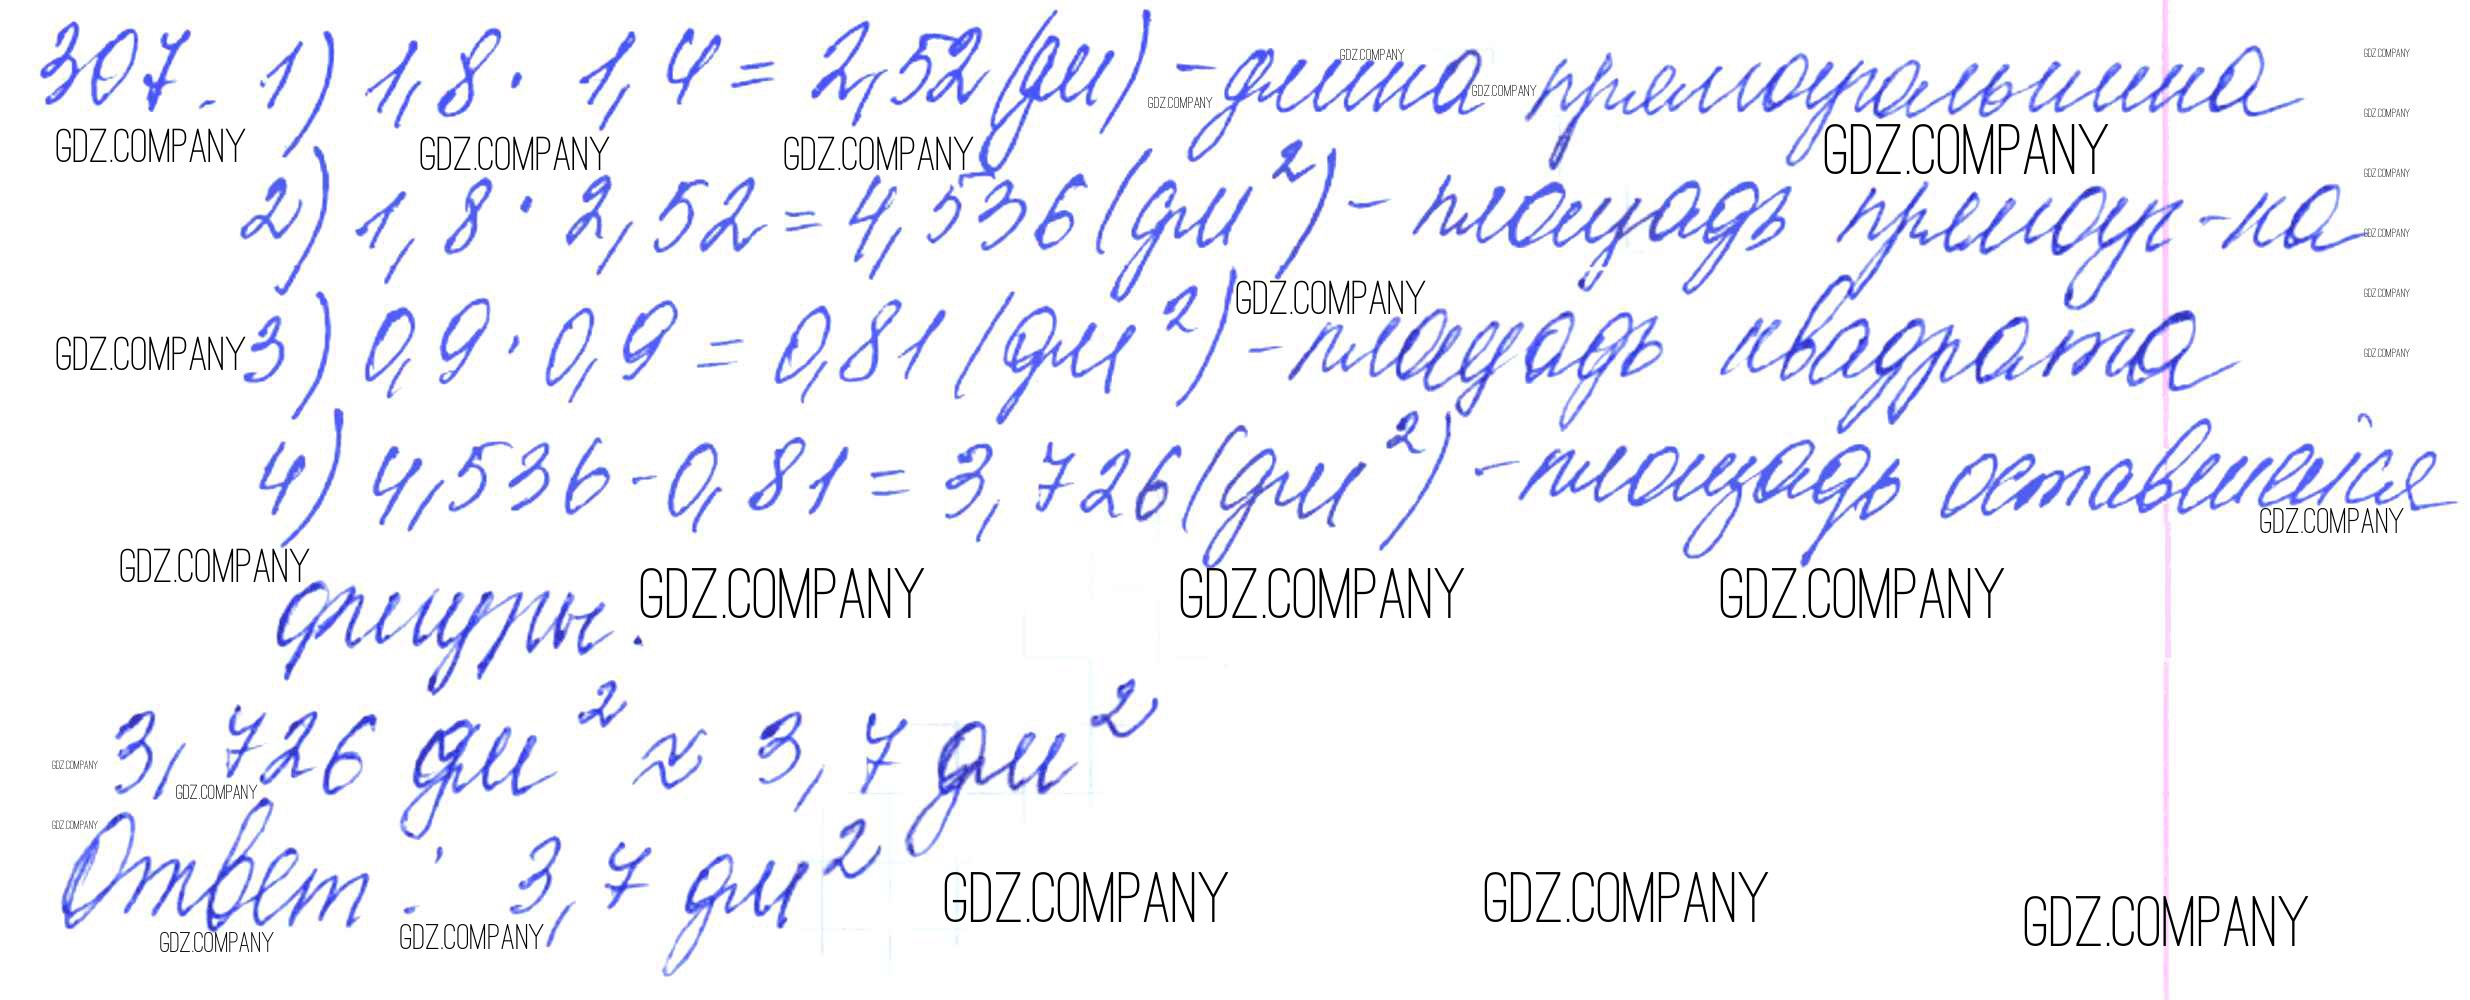 307. 1) 1,8 · 1,4 = 2,52 (дм) - длина прямоугольника
GDZ.COMPANY GDZ.COMPANY GDZ.COMPANY GDZ.COMPANY GDZ.COMPANY GDZ.COMPANY GDZ.COMPANY GDZ.COMPANY GDZ.COMPANY
2) 1,8 · 2,52 = 4,536 (дм²) - площадь прямоуг-ка
GDZ.COMPANY GDZ.COMPANY GDZ.COMPANY GDZ.COMPANY
3) 0,9 · 0,9 = 0,81 (дм²) - площадь квадрата
GDZ.COMPANY GDZ.COMPANY
4) 4,536 - 0,81 = 3,726 (дм²) - площадь оставшейся
GDZ.COMPANY GDZ.COMPANY GDZ.COMPANY GDZ.COMPANY GDZ.COMPANY
фигуры.
3,726 дм² ≈ 3,7 дм²
GDZ.COMPANY GDZ.COMPANY GDZ.COMPANY
Ответ: 3,7 дм²
GDZ.COMPANY GDZ.COMPANY GDZ.COMPANY GDZ.COMPANY GDZ.COMPANY